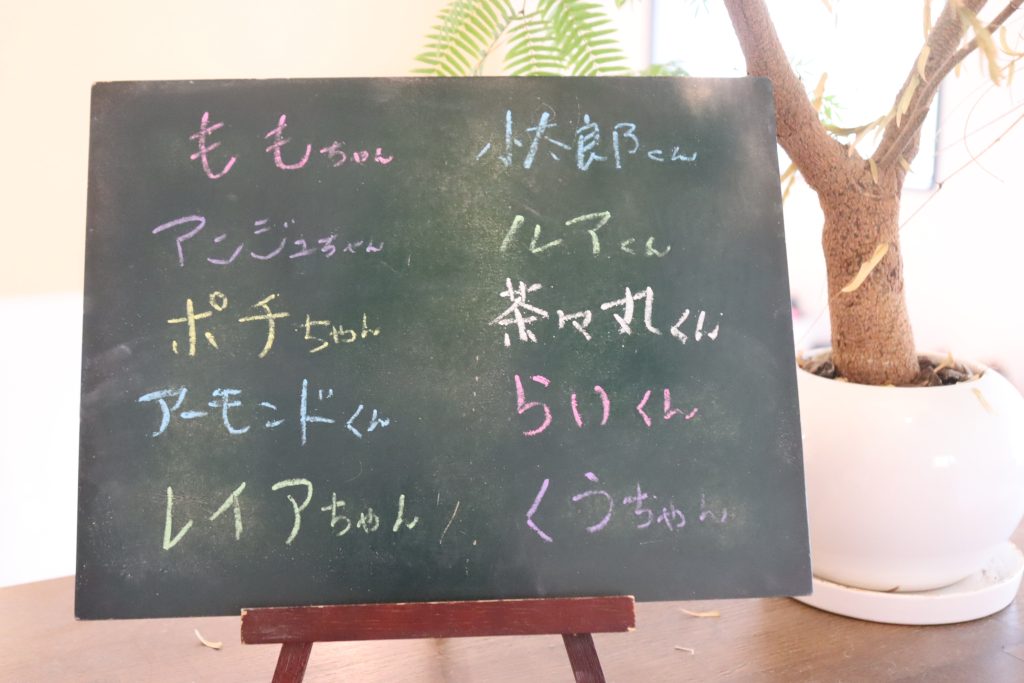 ももちゃん 小太郎くん
アンジュちゃん ルアくん
ポチちゃん 茶々丸くん
アーモンドくん らいくん
レイアちゃん くうちゃん